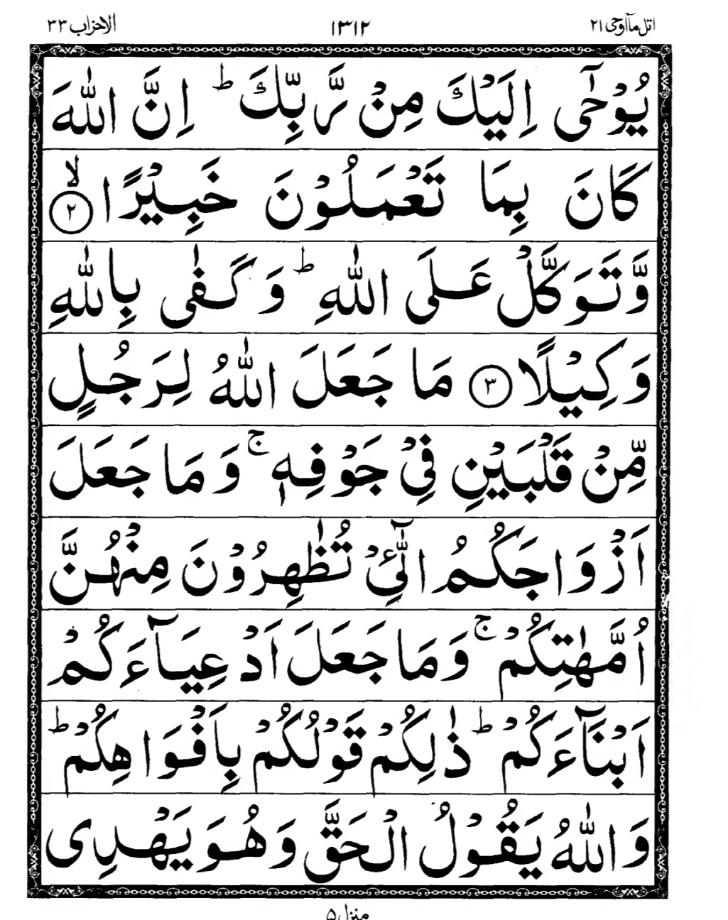 اتل مآاوحی ۲۱ ۱۳۱۲ الاحزاب ۳۳
يُوْحٰۤى اِلَيْكَ مِنْ رَّبِّكَ ؕ اِنَّ اللّٰهَ
كَانَ بِمَا تَعْمَلُوْنَ خَبِيْرًا ۙ﴿۲﴾
وَّتَوَكَّلْ عَلَى اللّٰهِ ؕ وَكَفٰى بِاللّٰهِ
وَكِيْلًا ﴿۳﴾ مَا جَعَلَ اللّٰهُ لِرَجُلٍ
مِّنْ قَلْبَيْنِ فِيْ جَوْفِهٖ ۚ وَمَا جَعَلَ
اَزْوَاجَكُمُ الّٰٓئِْ تُظٰهِرُوْنَ مِنْهُنَّ
اُمَّهٰتِكُمْ ۚ وَمَا جَعَلَ اَدْعِيَآءَكُمْ
اَبْنَآءَكُمْ ؕ ذٰلِكُمْ قَوْلُكُمْ بِاَفْوَاهِكُمْ ؕ
وَاللّٰهُ يَقُوْلُ الْحَقَّ وَهُوَ يَهْدِى
منزل ۵